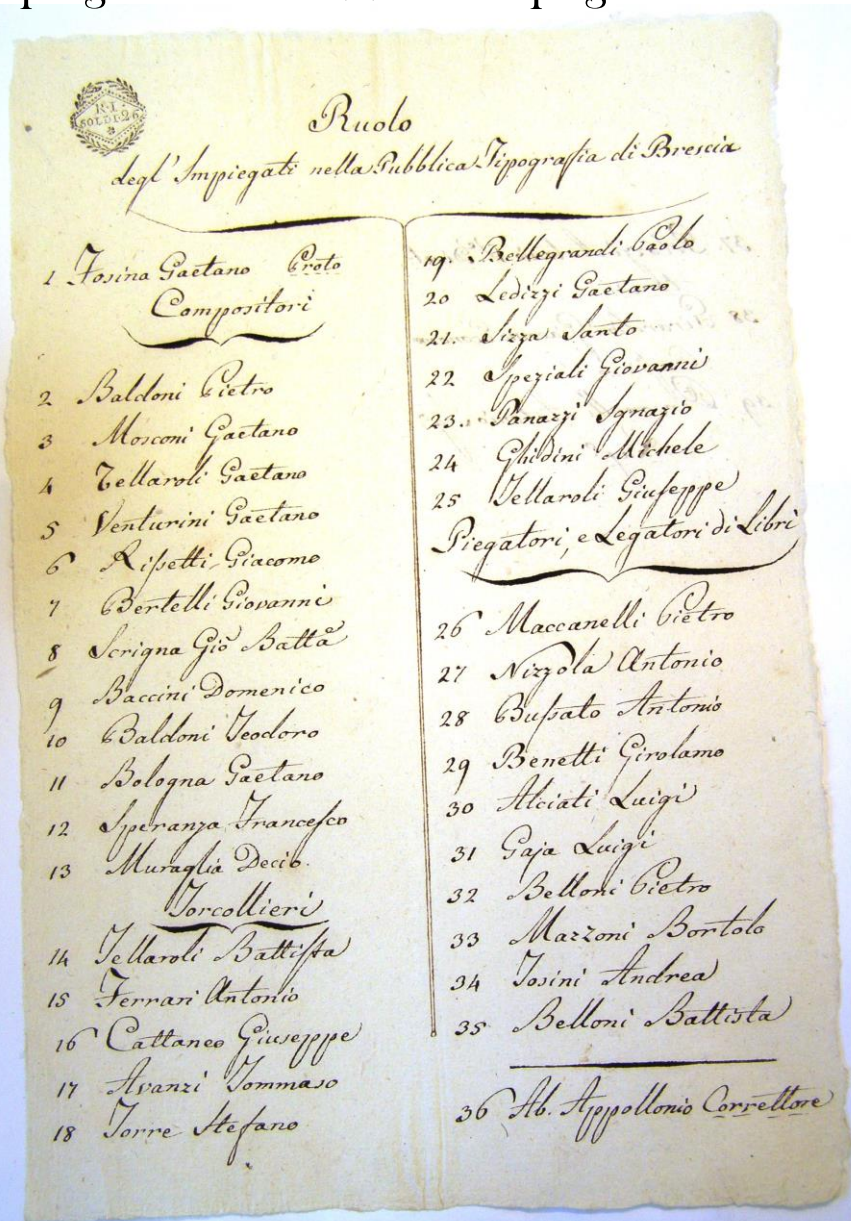 R. I.
SOLDI 26
Ruolo
degl' Impiegati nella Pubblica Tipografia di Brescia
1 Tosina Gaetano Proto
Compositori
2 Baldoni Pietro
3 Mosconi Gaetano
4 Tellaroli Gaetano
5 Venturini Gaetano
6 Rissetti Giacomo
7 Bertelli Giovanni
8 Scrigna Gio Batta
9 Baccini Domenico
10 Baldoni Teodoro
11 Bologna Gaetano
12 Speranza Francesco
13 Muraglia Decio.
Torcollieri
14 Tellaroli Battista
15 Ferrari Antonio
16 Cattaneo Giuseppe
17 Avanzi Tommaso
18 Torre Stefano
19. Bellegrandi Paolo
20 Ledizzi Gaetano
21. Sizza Santo
22 Speziali Giovanni
23. Panazzi Ignazio
24 Ghidini Michele
25 Tellaroli Giuseppe
Piegatori, e Legatori di Libri
26 Maccanelli Pietro
27 Nizzola Antonio
28 Bussato Antonio
29 Benetti Girolamo
30 Alciati Luigi
31 Gaja Luigi
32 Belloni Pietro
33 Mazzoni Bortolo
34 Tosini Andrea
35 Belloni Battista
36 Ab. Appollonio Correttore